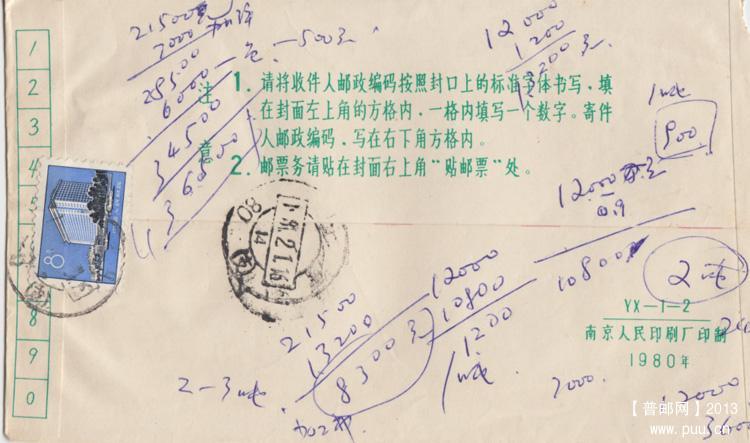 21500
7000
28500
6000
34500
一500元
12000
1200
1
2
3
4
5
8
9
0
注意
1. 请将收件人邮政编码按照封口上的标准字体书写，填
在封面左上角的方格内，一格内填写一个数字。寄件
人邮政编码，写在右下角方格内。
2. 邮票务请贴在封面右上角“贴邮票”处。
1吨
900
12000
0.9
10800
2吨
8
12000
10800
1200
1吨
21500
13200
8300元
2-3吨
YX-1-2
南京人民印刷厂印制
1980年
7000.
12000
【普邮网】2013
www.puu.cn